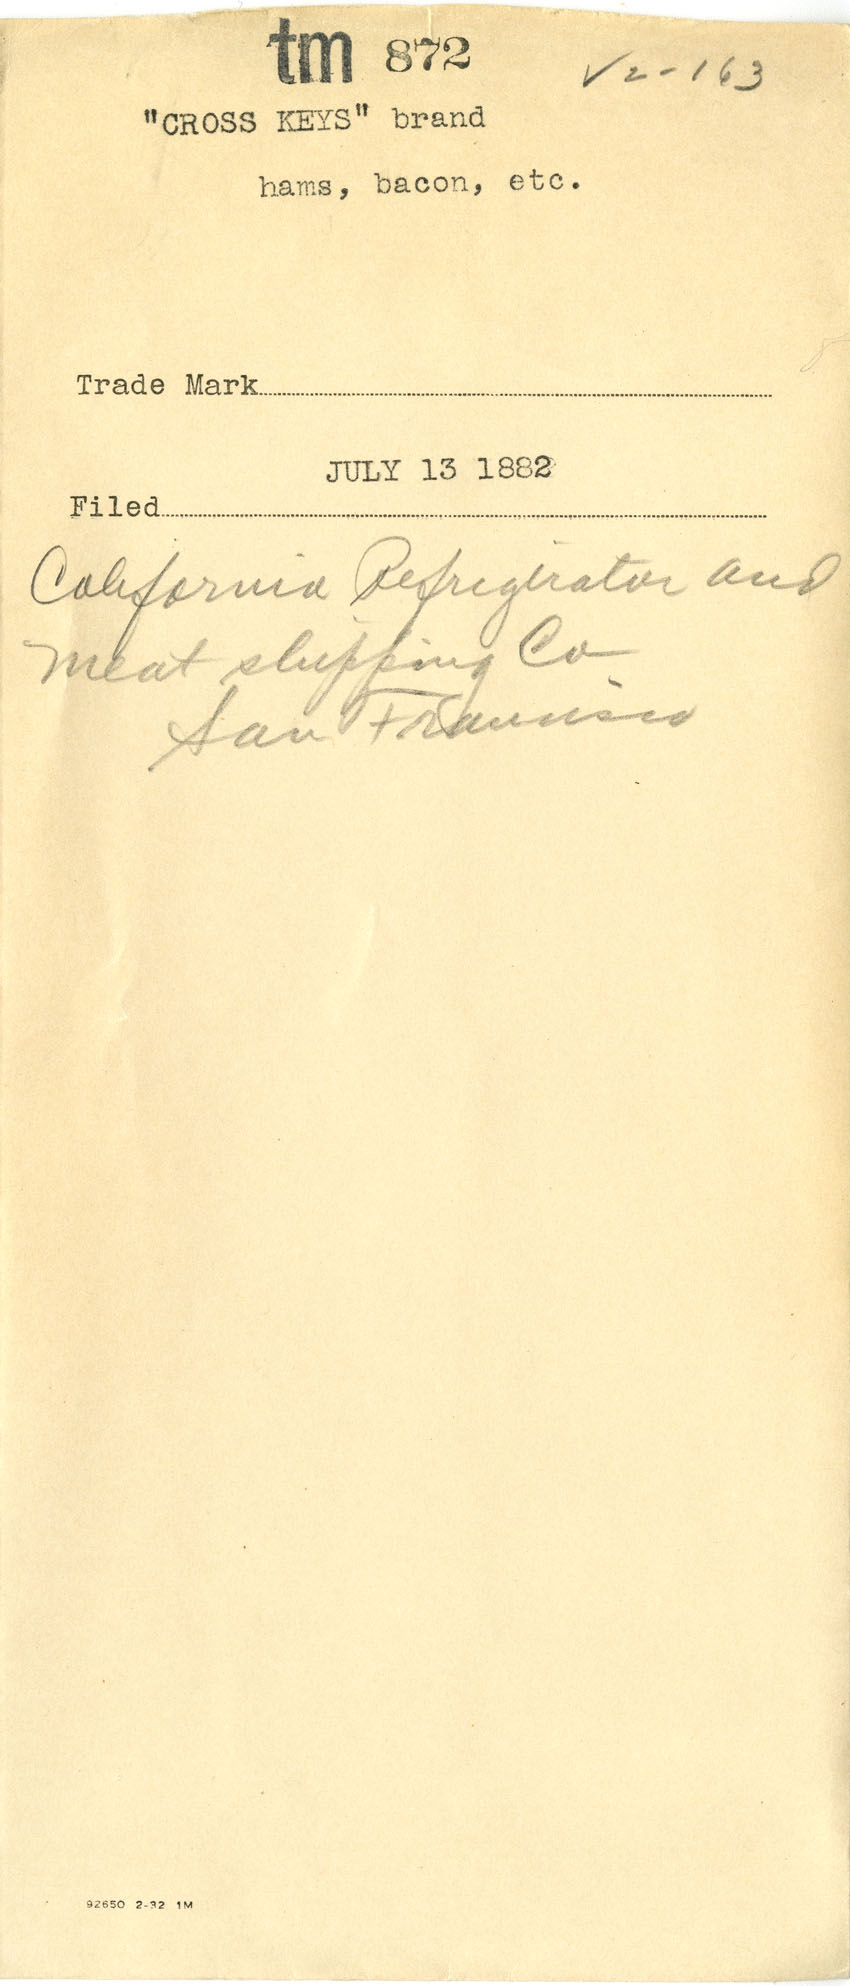 tm 872 V2-163
"CROSS KEYS" brand
hams, bacon, etc.
Trade Mark
JULY 13 1882
Filed
California Refrigirator and
Meat shipping Co
San Francisco
92650 2-32 1M